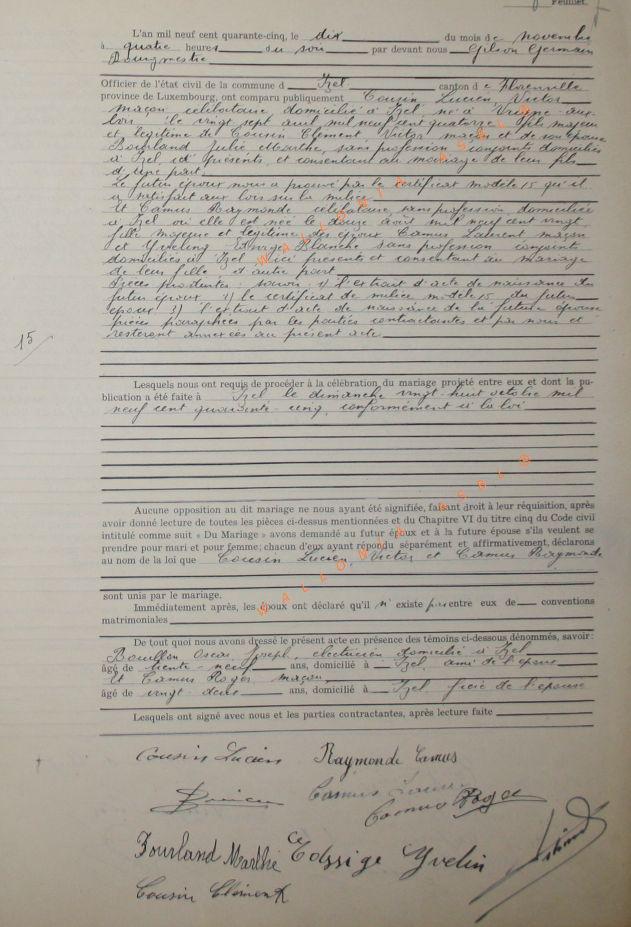 Feuillet.
L'an mil neuf cent quarante-cinq, le dix du mois de novembre
à quatre heures du soir par devant nous Gilson Germain
Bourgmestre
Officier de l'état civil de la commune d Izel canton de Florenville
province de Luxembourg, ont comparu publiquement Cousin Lucien Victor
maçon célibataire domicilié à Izel né à
lors le vingt sept avril mil neuf cent quatorze fils majeur
et légitime de Cousin Clément Victor maçon et de son épouse
Bourland Julie Marthe, sans profession conjoints domiciliés
à Izel ici présents et consentant au mariage de leur fils
d'une part
Le futur époux nous a prouvé par le certificat modèle 15 qu'il
a satisfait aux lois sur la milice
Et Camus Raymonde célibataire, sans profession domiciliée
à Izel où elle est née le douze août mil neuf cent vingt,
fille majeure et légitime des époux Camus Laurent maçon
et Yvelin Edwige Blanche sans profession conjoints
domiciliés à Izel ici présents et consentant au mariage
de leur fille d'autre part
Pièces produites: savoir: 1) l'extrait d'acte de naissance du
futur époux 2) le certificat de milice modèle 15 du futur
époux 3) l'extrait d'acte de naissance de la future épouse
pièces paraphées par les parties contractantes et par nous et
resteront annexées au présent acte
15
Lesquels nous ont requis de procéder à la célébration du mariage projeté entre eux et dont la pu-
blication a été faite à Izel le dimanche vingt-huit octobre mil
neuf cent quarante-cinq, conformément à la loi
Aucune opposition au dit mariage ne nous ayant été signifiée, faisant droit à leur réquisition, après
avoir donné lecture de toutes les pièces ci-dessus mentionnées et du Chapitre VI du titre cinq du Code civil
intitulé comme suit « Du Mariage » avons demandé au futur époux et à la future épouse s'ils veulent se
prendre pour mari et pour femme; chacun d'eux ayant répondu séparément et affirmativement, déclarons
au nom de la loi que Cousin Lucien, Victor et Camus Raymonde
sont unis par le mariage.
Immédiatement après, les époux ont déclaré qu'il n'existe pas entre eux de conventions
matrimoniales
De tout quoi nous avons dressé le présent acte en présence des témoins ci-dessous dénommés, savoir:
Bouillon Oscar Joseph, électricien domicilié à Izel
âgé de trente-neuf ans, domicilié à Izel, ami de l'époux
Et Camus Roger maçon
âgé de vingt-deux ans, domicilié à Izel frère de l'épouse
Lesquels ont signé avec nous et les parties contractantes, après lecture faite
Cousin Lucien Raymonde Camus
Camus
Camus Roger
Bourland Marthe Yvelin
Cousin Clément
WALLONIA ASBL
WALLONIA ASBL